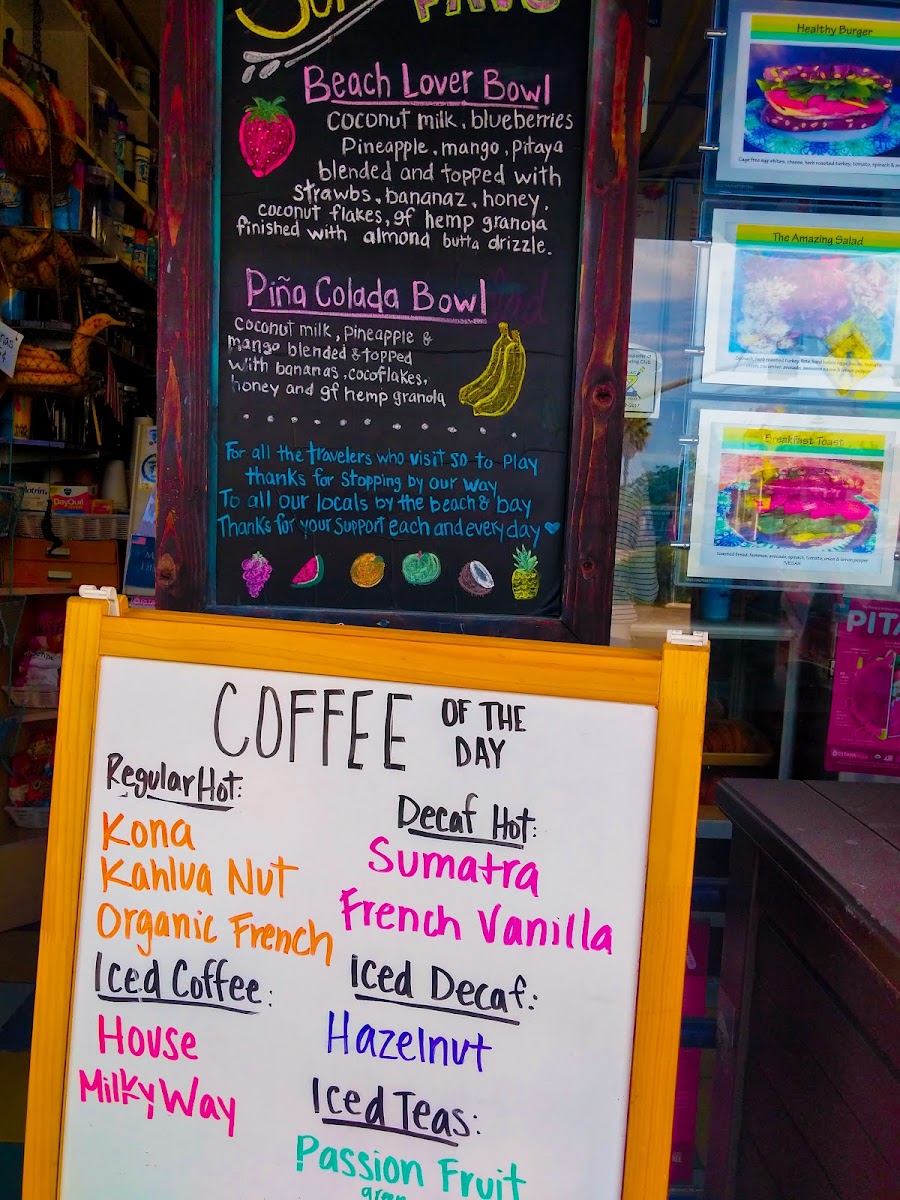 Beach Lover Bowl
coconut milk, blueberries
Pineapple, mango, pitaya
blended and topped with
strawbs, bananaz, honey,
coconut flakes, gf hemp granola
finished with almond butta drizzle.
Piña Colada Bowl
coconut milk, pineapple &
mango blended & topped
with bananas, cocoflakes,
honey and gf hemp granola
For all the travelers who visit SD to Play
thanks for stopping by our way
To all our locals by the beach & bay
Thanks for your support each and every day
COFFEE OF THE DAY
Regular Hot:
Kona
Kahlua Nut
Organic French
Iced Coffee:
House
Milky Way
Decaf Hot:
Sumatra
French Vanilla
Iced Decaf:
Hazelnut
Iced Teas:
Passion Fruit
green
Healthy Burger
The Amazing Salad
Breakfast Toast
VEGAN
PITA
DayQuil